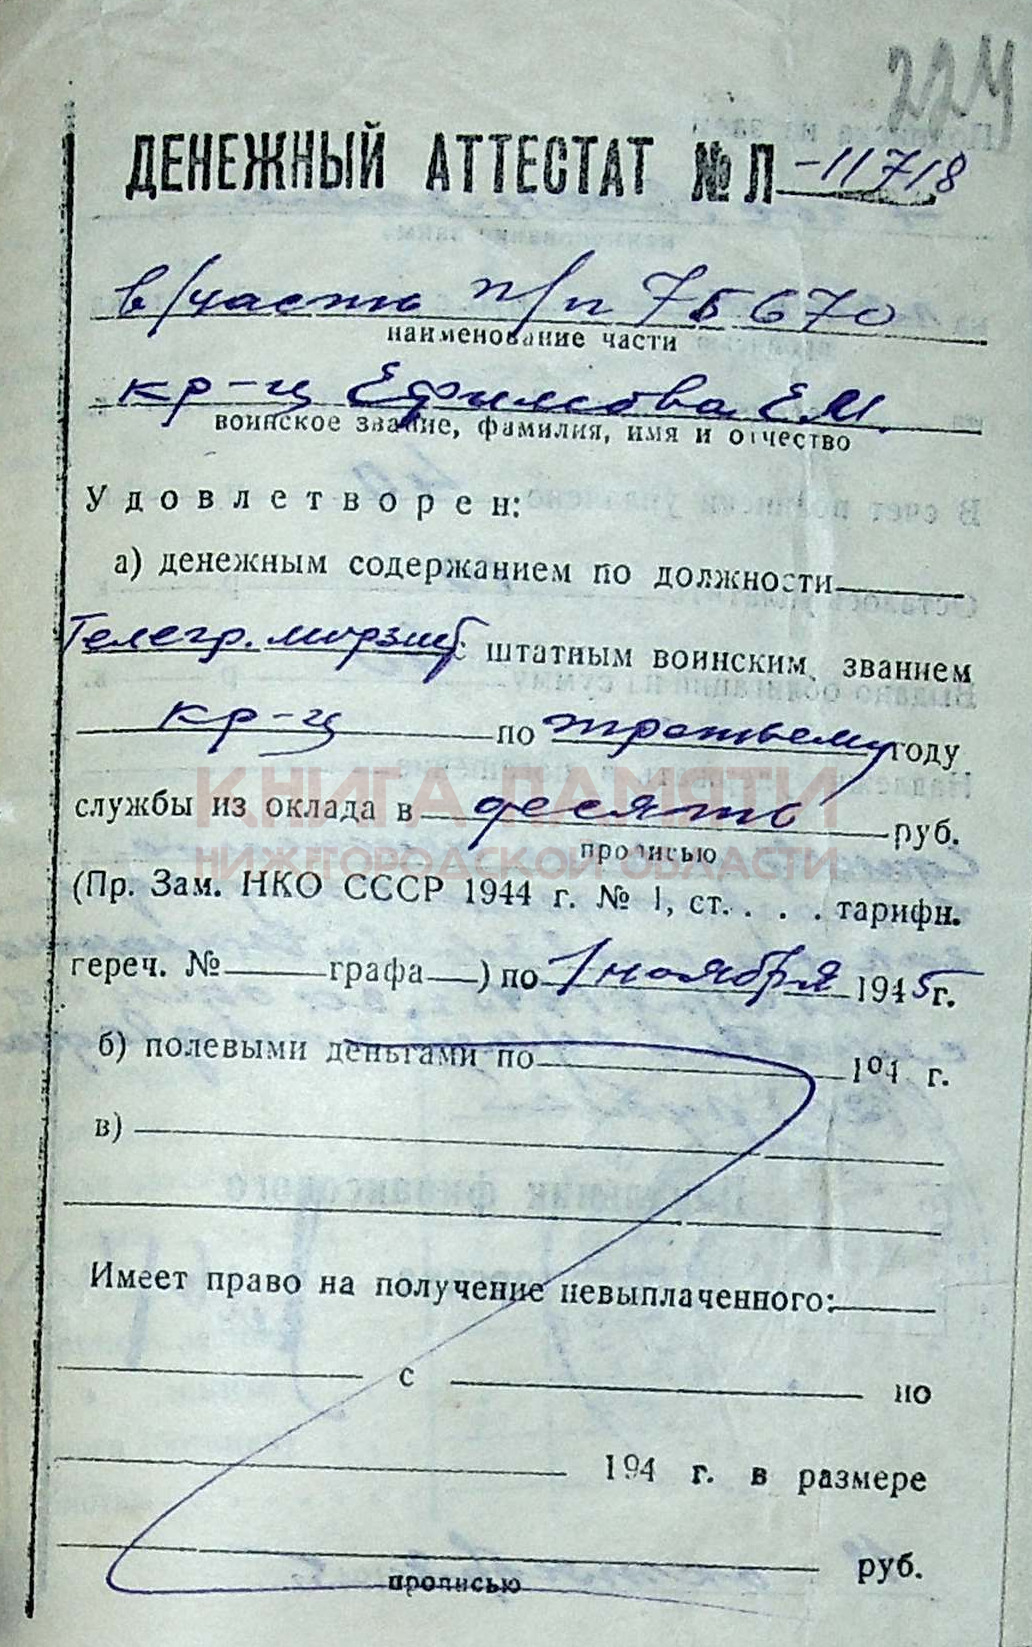 224
ДЕНЕЖНЫЙ АТТЕСТАТ № Л -11718
в/часть п/п 75670
наименование части
кр-ц Ефимова Е.М.
воинское звание, фамилия, имя и отчество
Удовлетворен:
а) денежным содержанием по должности
Телегр. морзист с штатным воинским званием
кр-ц по третьему году
службы из оклада в десять руб.
прописью
КНИГА ПАМЯТИ
НИЖЕГОРОДСКОЙ ОБЛАСТИ
(Пр. Зам. НКО СССР 1944 г. № 1, ст. . . . тарифн.
переч. № графа ) по 1 ноября 1945 г.
б) полевыми деньгами по 194 г.
в)
Имеет право на получение невыплаченного:
с по
194 г. в размере
руб.
прописью